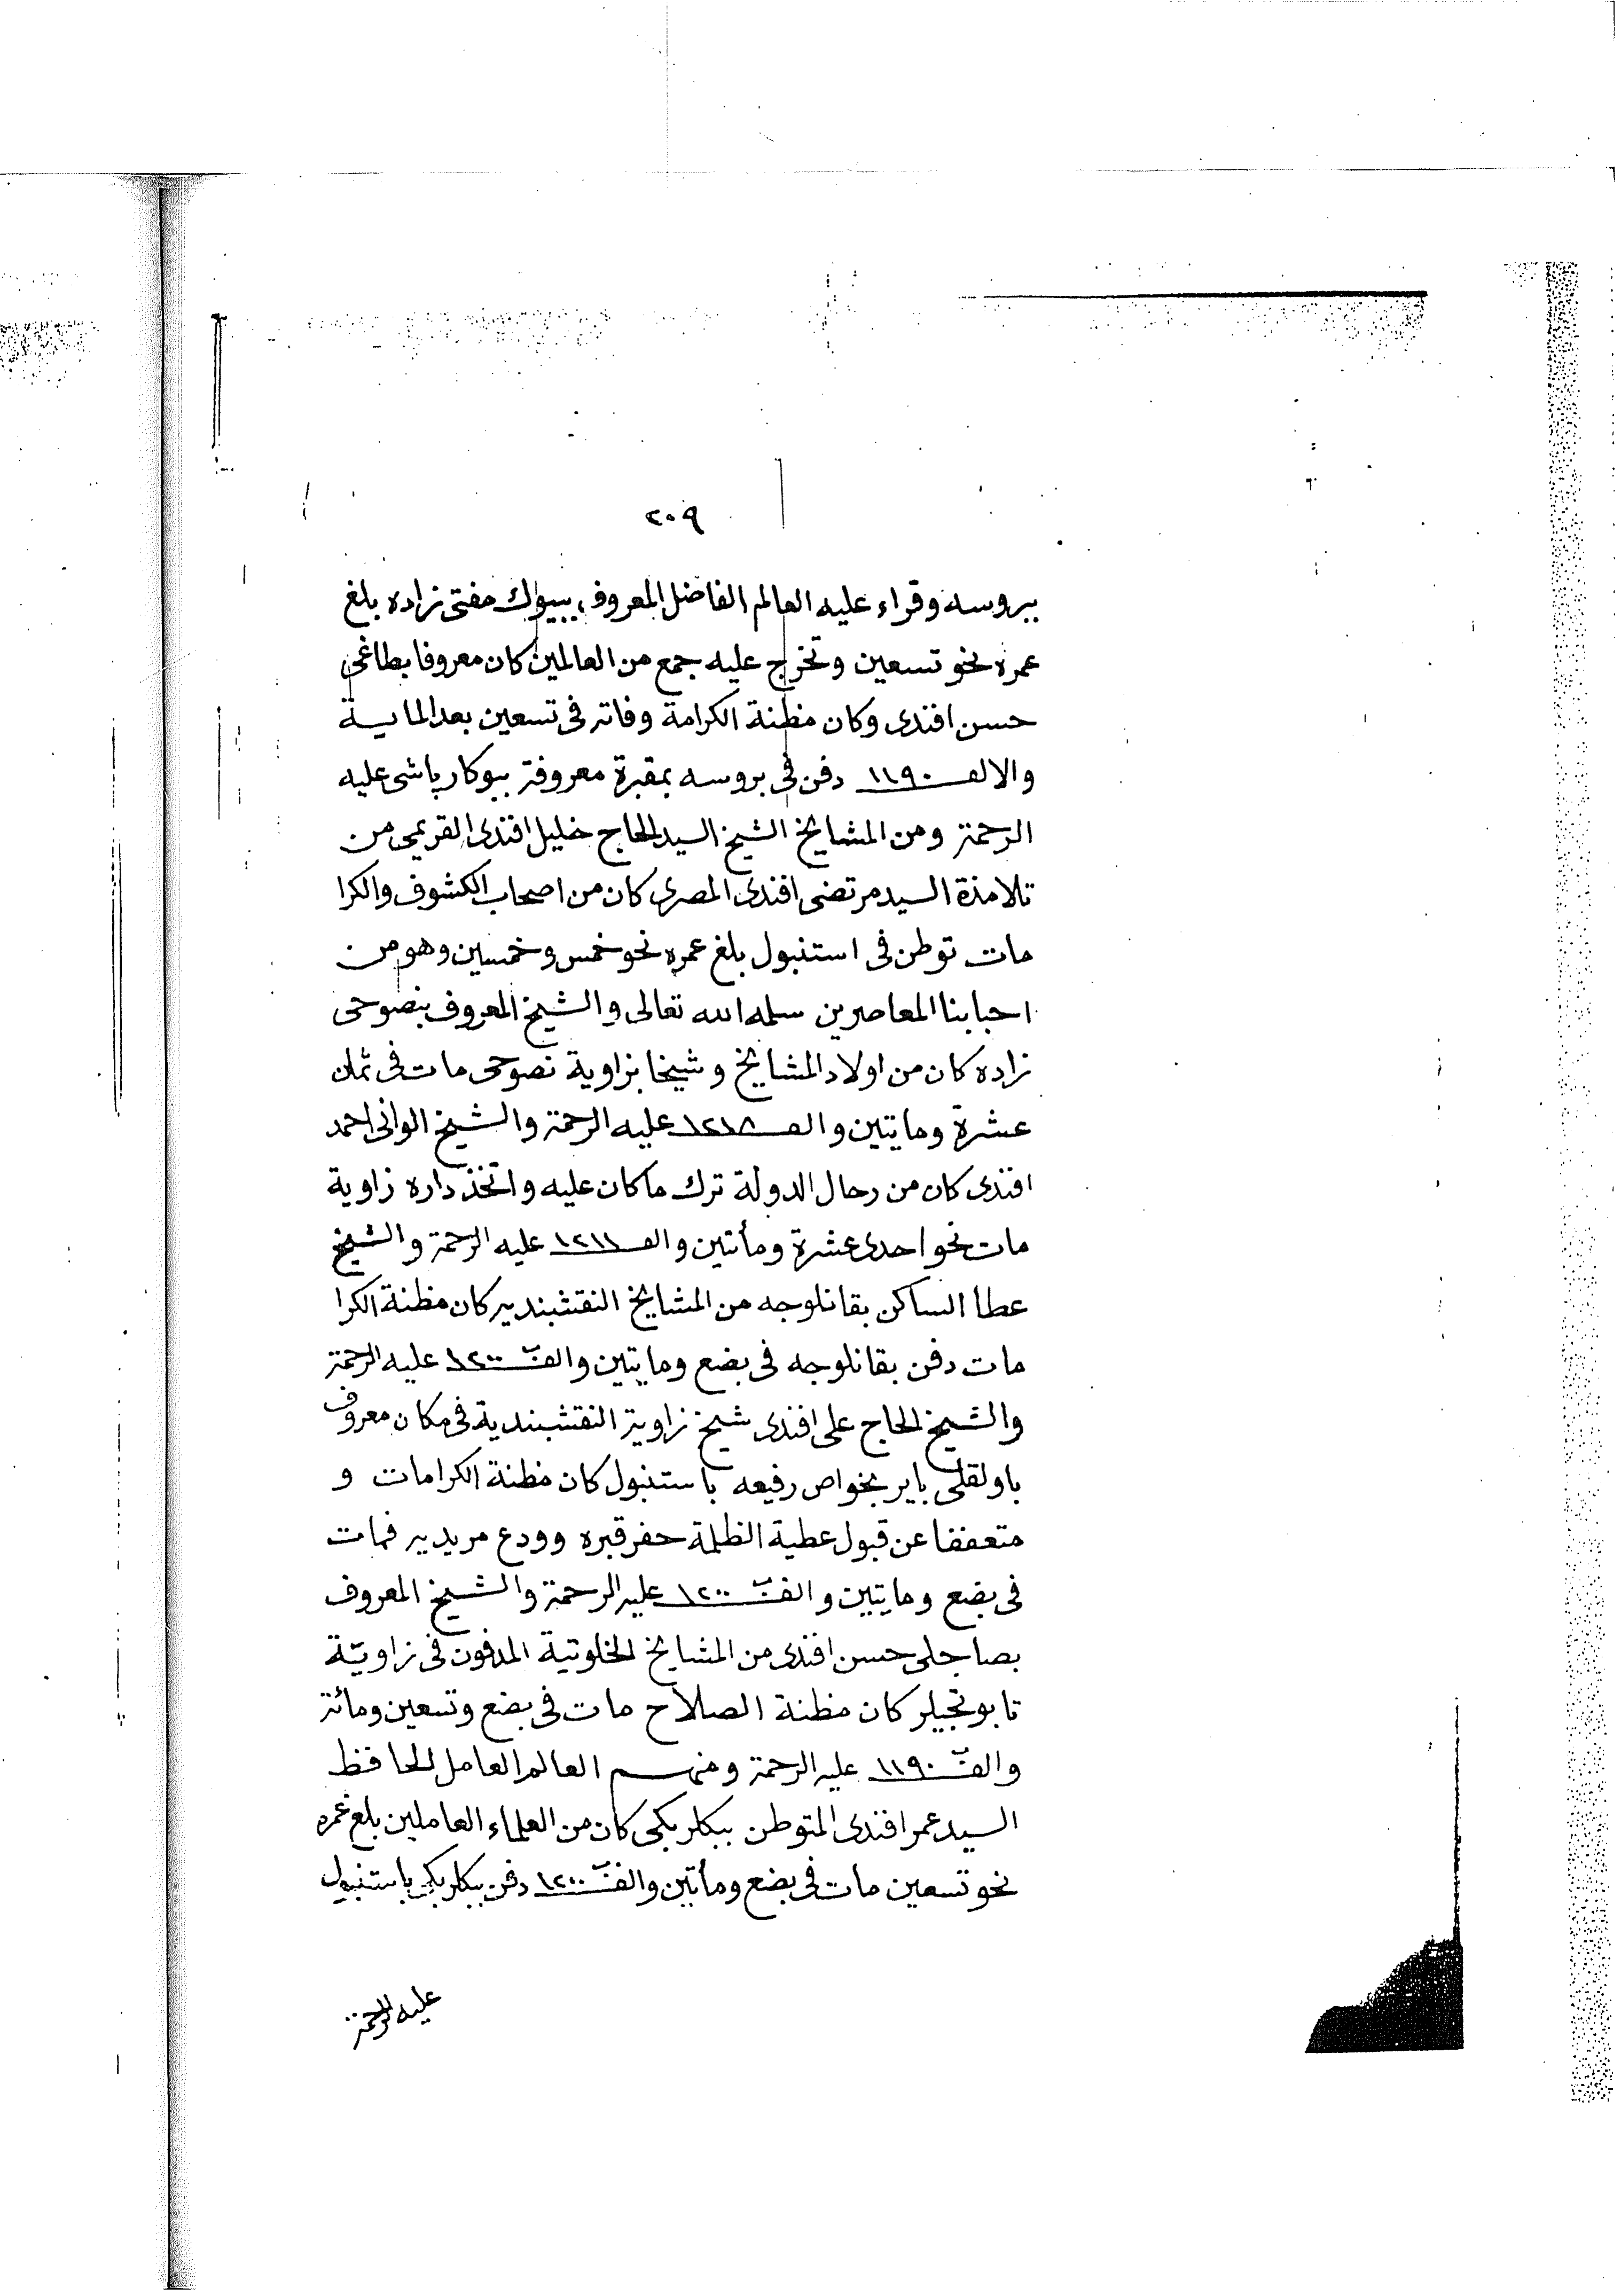 ٢٠٩
ببروسه وقراء عليه العالم الفاضل المعروف ببيوك مفتى زاده بلغ
عمره نحو تسعين وتخرج عليه جمع من العالمين كان معروفا بطاغى
حسن افندى وكان مظنة الكرامة وفاته فى تسعين بعد الماية
والالف ١١٩٠ دفن فى بروسه بمقبرة معروفة ببوكار باشى عليه
الرحمة ومن المشايخ الشيخ السيد الحاج خليل افندى القريمى من
تلامذة السيد مرتضى افندى المصرى كان من اصحاب الكشوف والكرا
مات توطن فى استنبول بلغ عمره نحو خمس وخمسين وهو من
احبابنا المعاصرين سلمه الله تعالى والشيخ المعروف بنصوحى
زاده كان من اولاد المشايخ وشيخا بزاوية نصوحى مات فى ثمان
عشرة ومايتين والف ١٢١٨ عليه الرحمة والشيخ الوانى احمد
افندى كان من رجال الدولة ترك ما كان عليه واتخذ داره زاوية
مات نحو احدى عشرة ومأتين والف ١٢١١ عليه الرحمة والشيخ
عطا الساكن بقانلوجه من المشايخ النقشبنديه كان مظنة الكرا
مات دفن بقانلوجه فى بضع ومايتين والف ١٢٠٠ عليه الرحمة
والشيخ الحاج على افندى شيخ زاوية النقشبندية فى مكان معروف
باولقلى باير بخواص رفيعه باستنبول كان مظنة الكرامات و
متعففا عن قبول عطية الظلمة حفر قبره وودع مريديه فمات
فى بضع ومايتين والف ١٢٠٠ عليه الرحمة والشيخ المعروف
بصاجلى حسن افندى من المشايخ الخلوتية المدفون فى زاوية
تابوتجيلر كان مظنة الصلاح مات فى بضع وتسعين ومائة
والف ١١٩٠ عليه الرحمة ومنهم العالم العامل الحافظ
السيد عمر افندى المتوطن ببكلربكى كان من العلماء العاملين بلغ عمره
نحو تسعين مات فى بضع ومأتين والف ١٢٠٠ دفن ببكلربكى باستنبول
عليه الرحمة